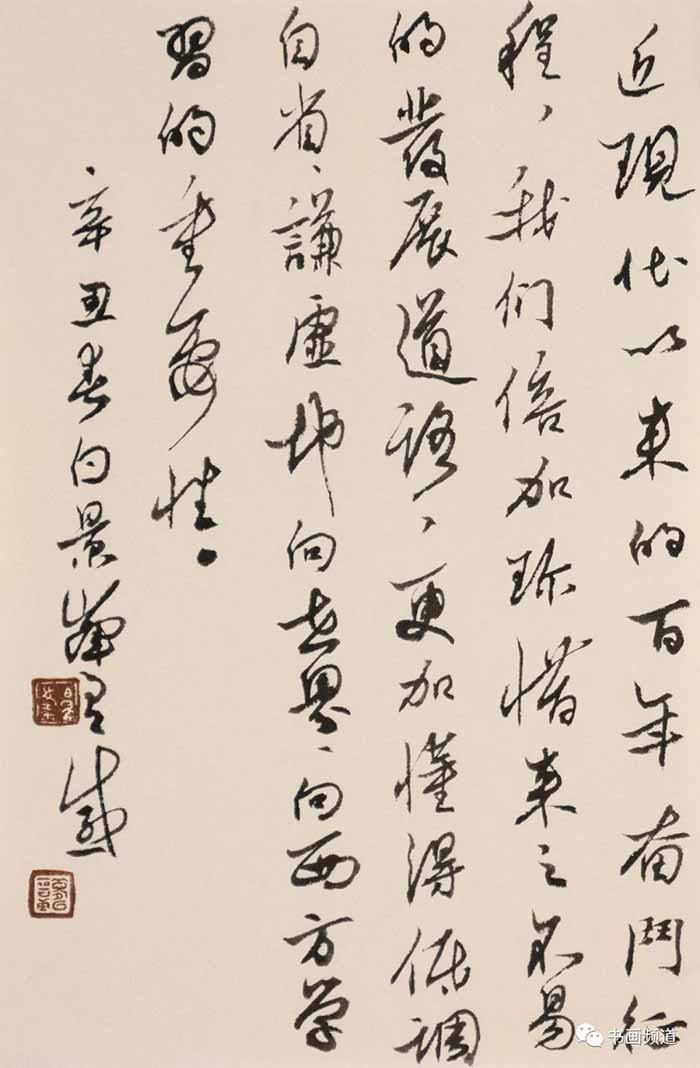 近現代以来的百年奋鬥征
程，我们倍加珍惜来之不易
的發展道路，更加懂得低调
自省、謙虚地向世界、向西方学
習的重要性。
辛丑春白景峰有感
书画频道